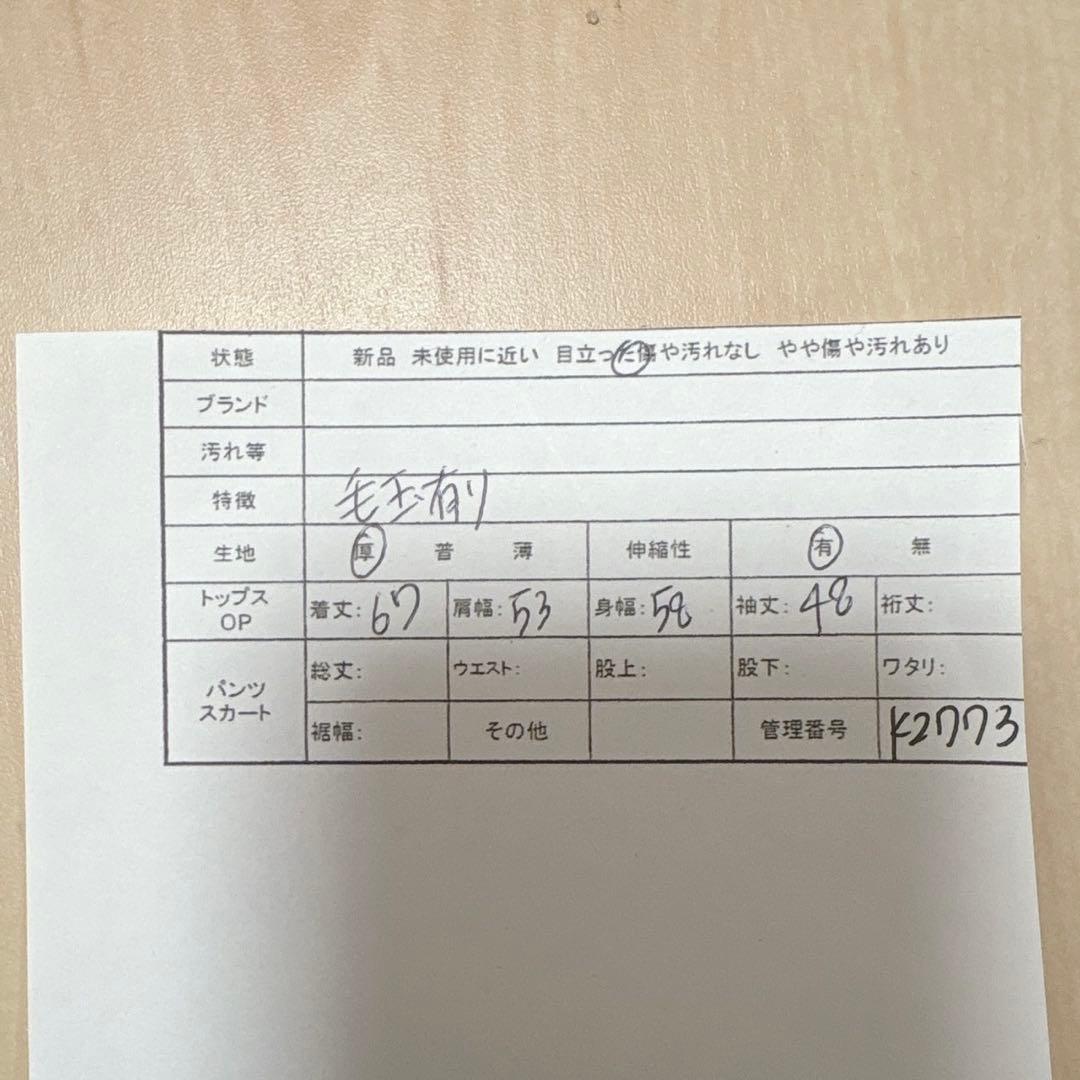 状態 新品 未使用に近い 目立った傷や汚れなし やや傷や汚れあり
ブランド
汚れ等
特徴 毛玉有り
生地 厚 普 薄 伸縮性 有 無
トップス OP 着丈:67 肩幅:53 身幅:58 袖丈:48 裄丈:
パンツ スカート 総丈: ウエスト: 股上: 股下: ワタリ:
裾幅: その他 管理番号 K2773